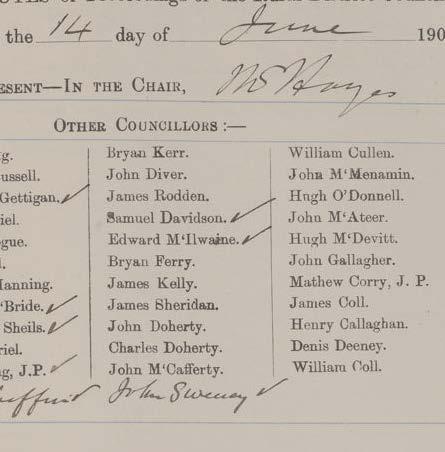 the 14 day of June 190
ESENT—IN THE CHAIR, Mr Hayes
OTHER COUNCILLORS :—
g.
ussell.
Gettigan. ✓
iel.
gue.
l.
Manning.
‘Bride. ✓
Sheils. ✓
riel.
g, J.P. ✓
Bryan Kerr.
John Diver.
James Rodden.
Samuel Davidson. ✓
Edward M‘Ilwaine. ✓
Bryan Ferry.
James Kelly.
James Sheridan.
John Doherty.
Charles Doherty.
John M‘Cafferty.
John Sweeney ✓
William Cullen.
John M‘Menamin.
Hugh O’Donnell.
John M‘Ateer.
Hugh M‘Devitt.
John Gallagher.
Mathew Corry, J. P.
James Coll.
Henry Callaghan.
Denis Deeney.
William Coll.